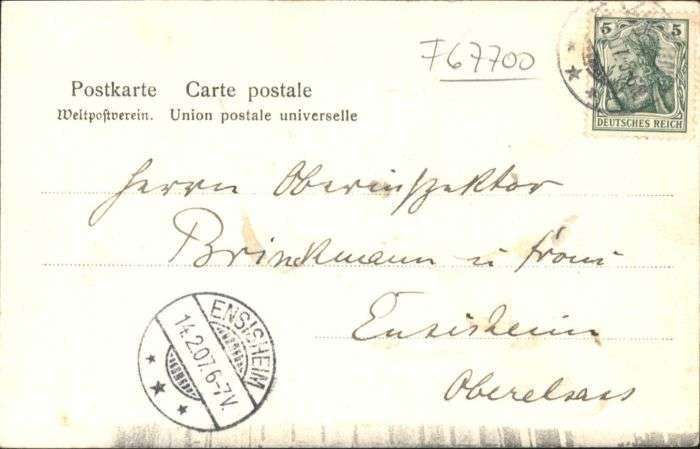 F67700
5 5
DEUTSCHES REICH
Postkarte Carte postale
Weltpostverein. Union postale universelle
Herrn Oberinspektor
Brinckmann u Frau
Ensisheim
Oberelsass
ENSISHEIM
14.2.07.6-7V.